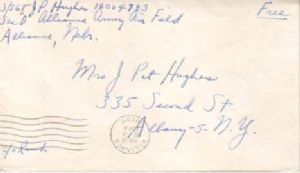 S/Sgt J.P. Hughes
Sec D Alliance Army Air Field
Alliance, Nebr.
Free
Mrs J Pat Hughes
335 Second St
Albany-5-N.Y.